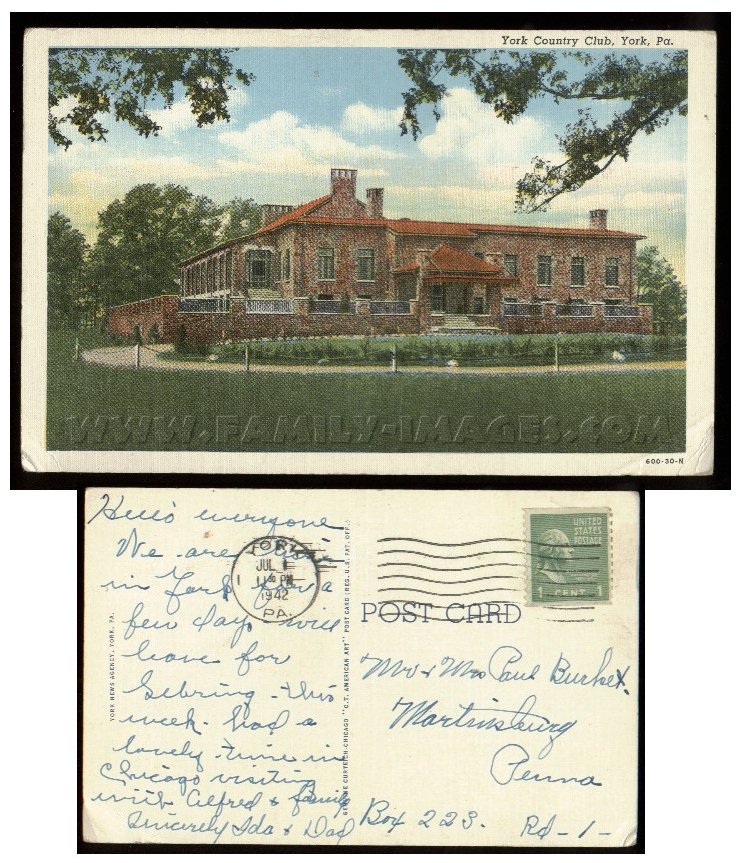 York Country Club, York, Pa.
WWW.FAMILY-IMAGES.COM
600-30-N
Hello everyone
We are
in York for a
few days will
leave for
Sebring this
week. had a
lovely time in
Chicago visiting
with Alfred & family
Sincerely Ida & Dad
YORK
JUL 1
11 30 PM
1942
PA.
YORK NEWS AGENCY, YORK, PA.
GENUINE CURTEICH-CHICAGO "C.T. AMERICAN ART" POST CARD (REG. U.S. PAT. OFF.)
UNITED
STATES
POSTAGE
1 CENT 1
POST CARD
Mr & Mrs Paul Burket.
Martinsburg
Penna
Box 223. Rd-1-